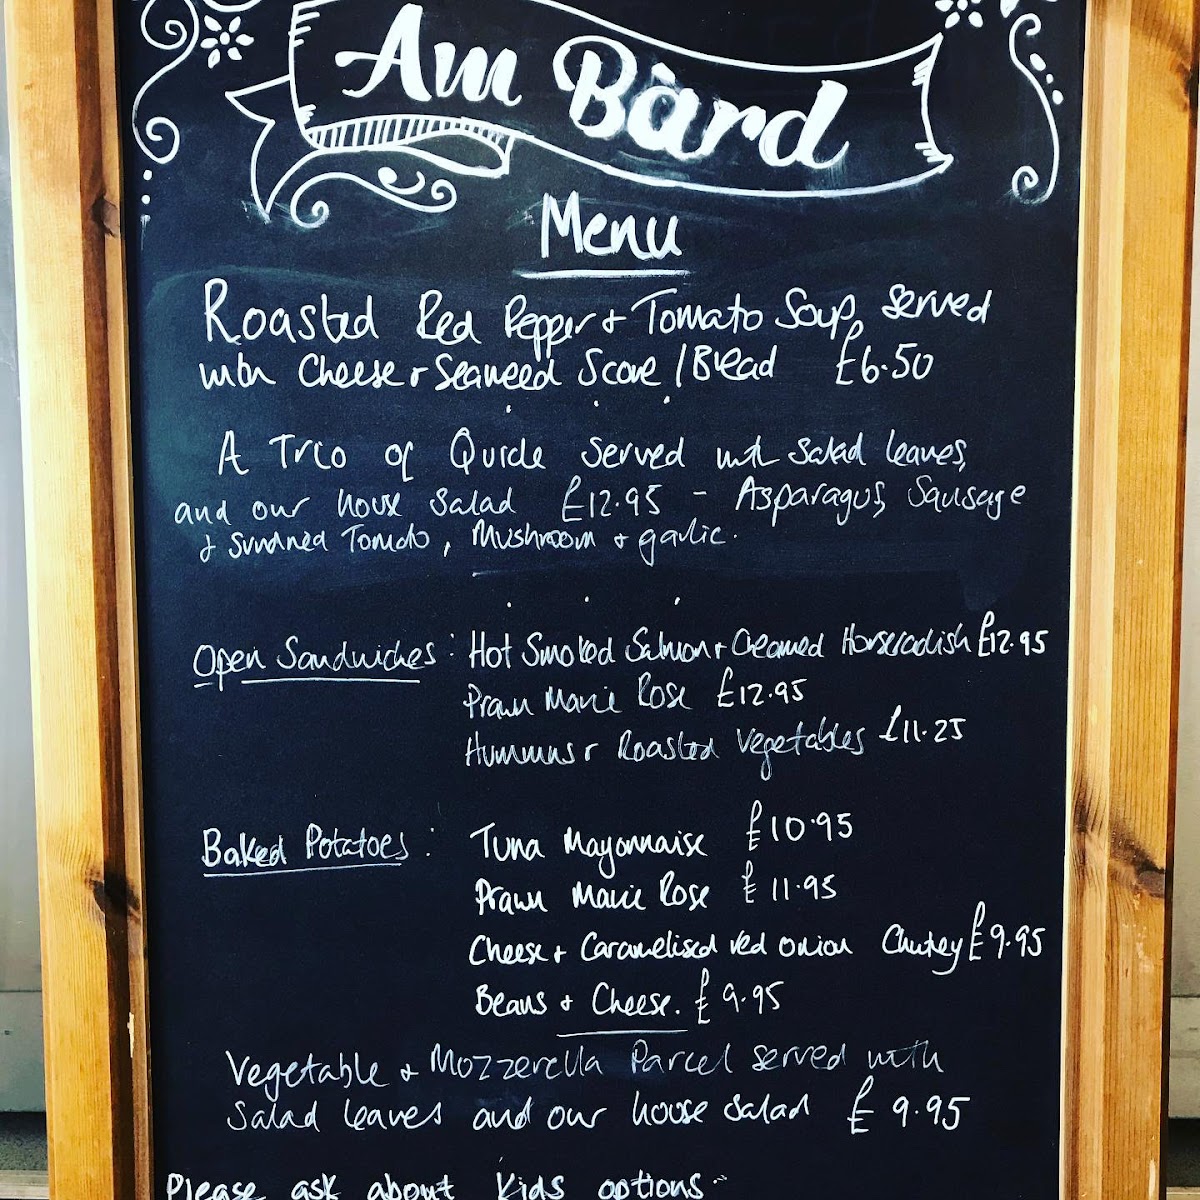 Am Bàrd
Menu
Roasted Red Pepper & Tomato Soup, served
with Cheese & Seaweed Scone / Bread £6.50
A Trio of Quiche served with salad leaves,
and our house salad £12.95 - Asparagus, Sausage
& Sundried Tomato, Mushroom & garlic.
Open Sandwiches: Hot Smoked Salmon & Creamed Horseradish £12.95
Prawn Marie Rose £12.95
Hummus & Roasted Vegetables £11.25
Baked Potatoes: Tuna Mayonnaise £10.95
Prawn Marie Rose £11.95
Cheese & Caramelised red onion Chutney £9.95
Beans & Cheese. £9.95
Vegetable & Mozzerella Parcel served with
Salad leaves and our house salad £9.95
Please ask about Kids options.